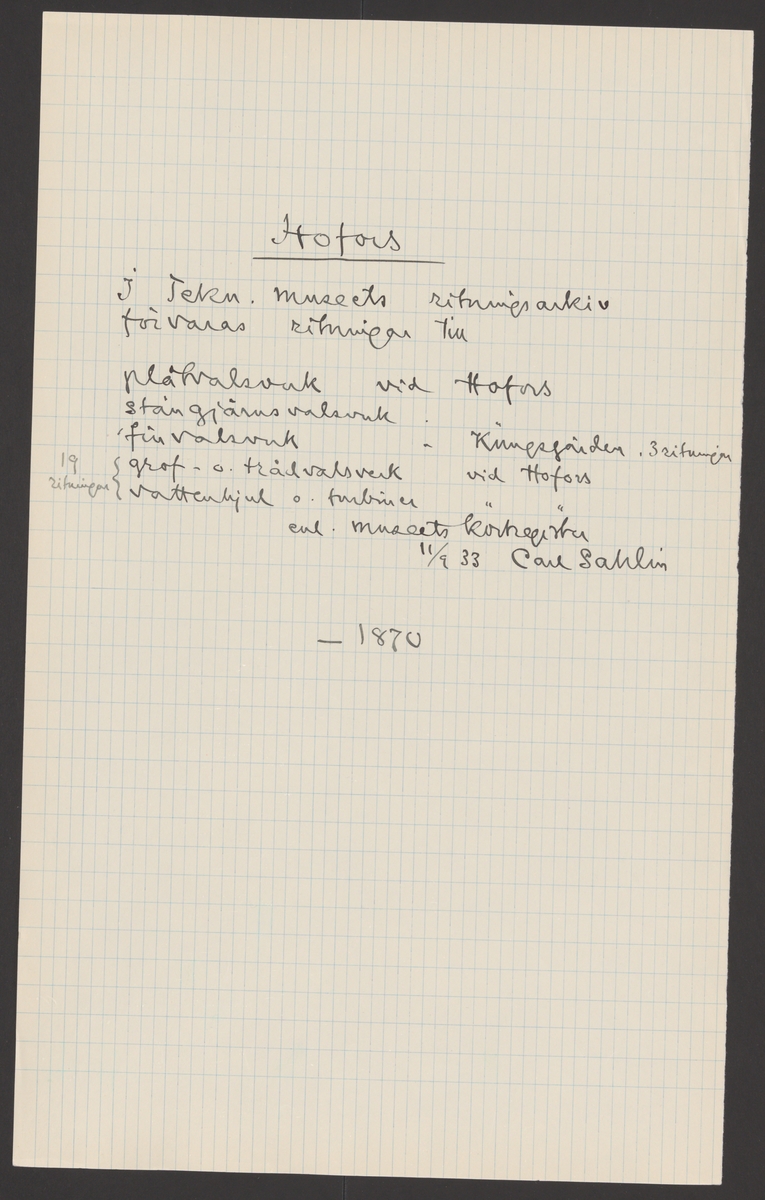 Hofors
I Tekn. museets ritningsarkiv
förvaras ritningar till
plåtvalsverk vid Hofors
stångjärnsvalsverk .
finvalsverk - Kungsgården . 3 ritningar
19 ritningar { grof- o. trådvalsverk vid Hofors
vattenhjul o. turbiner " "
enl. museets kortregister
11/9 33 Carl Sahlin
— 1870